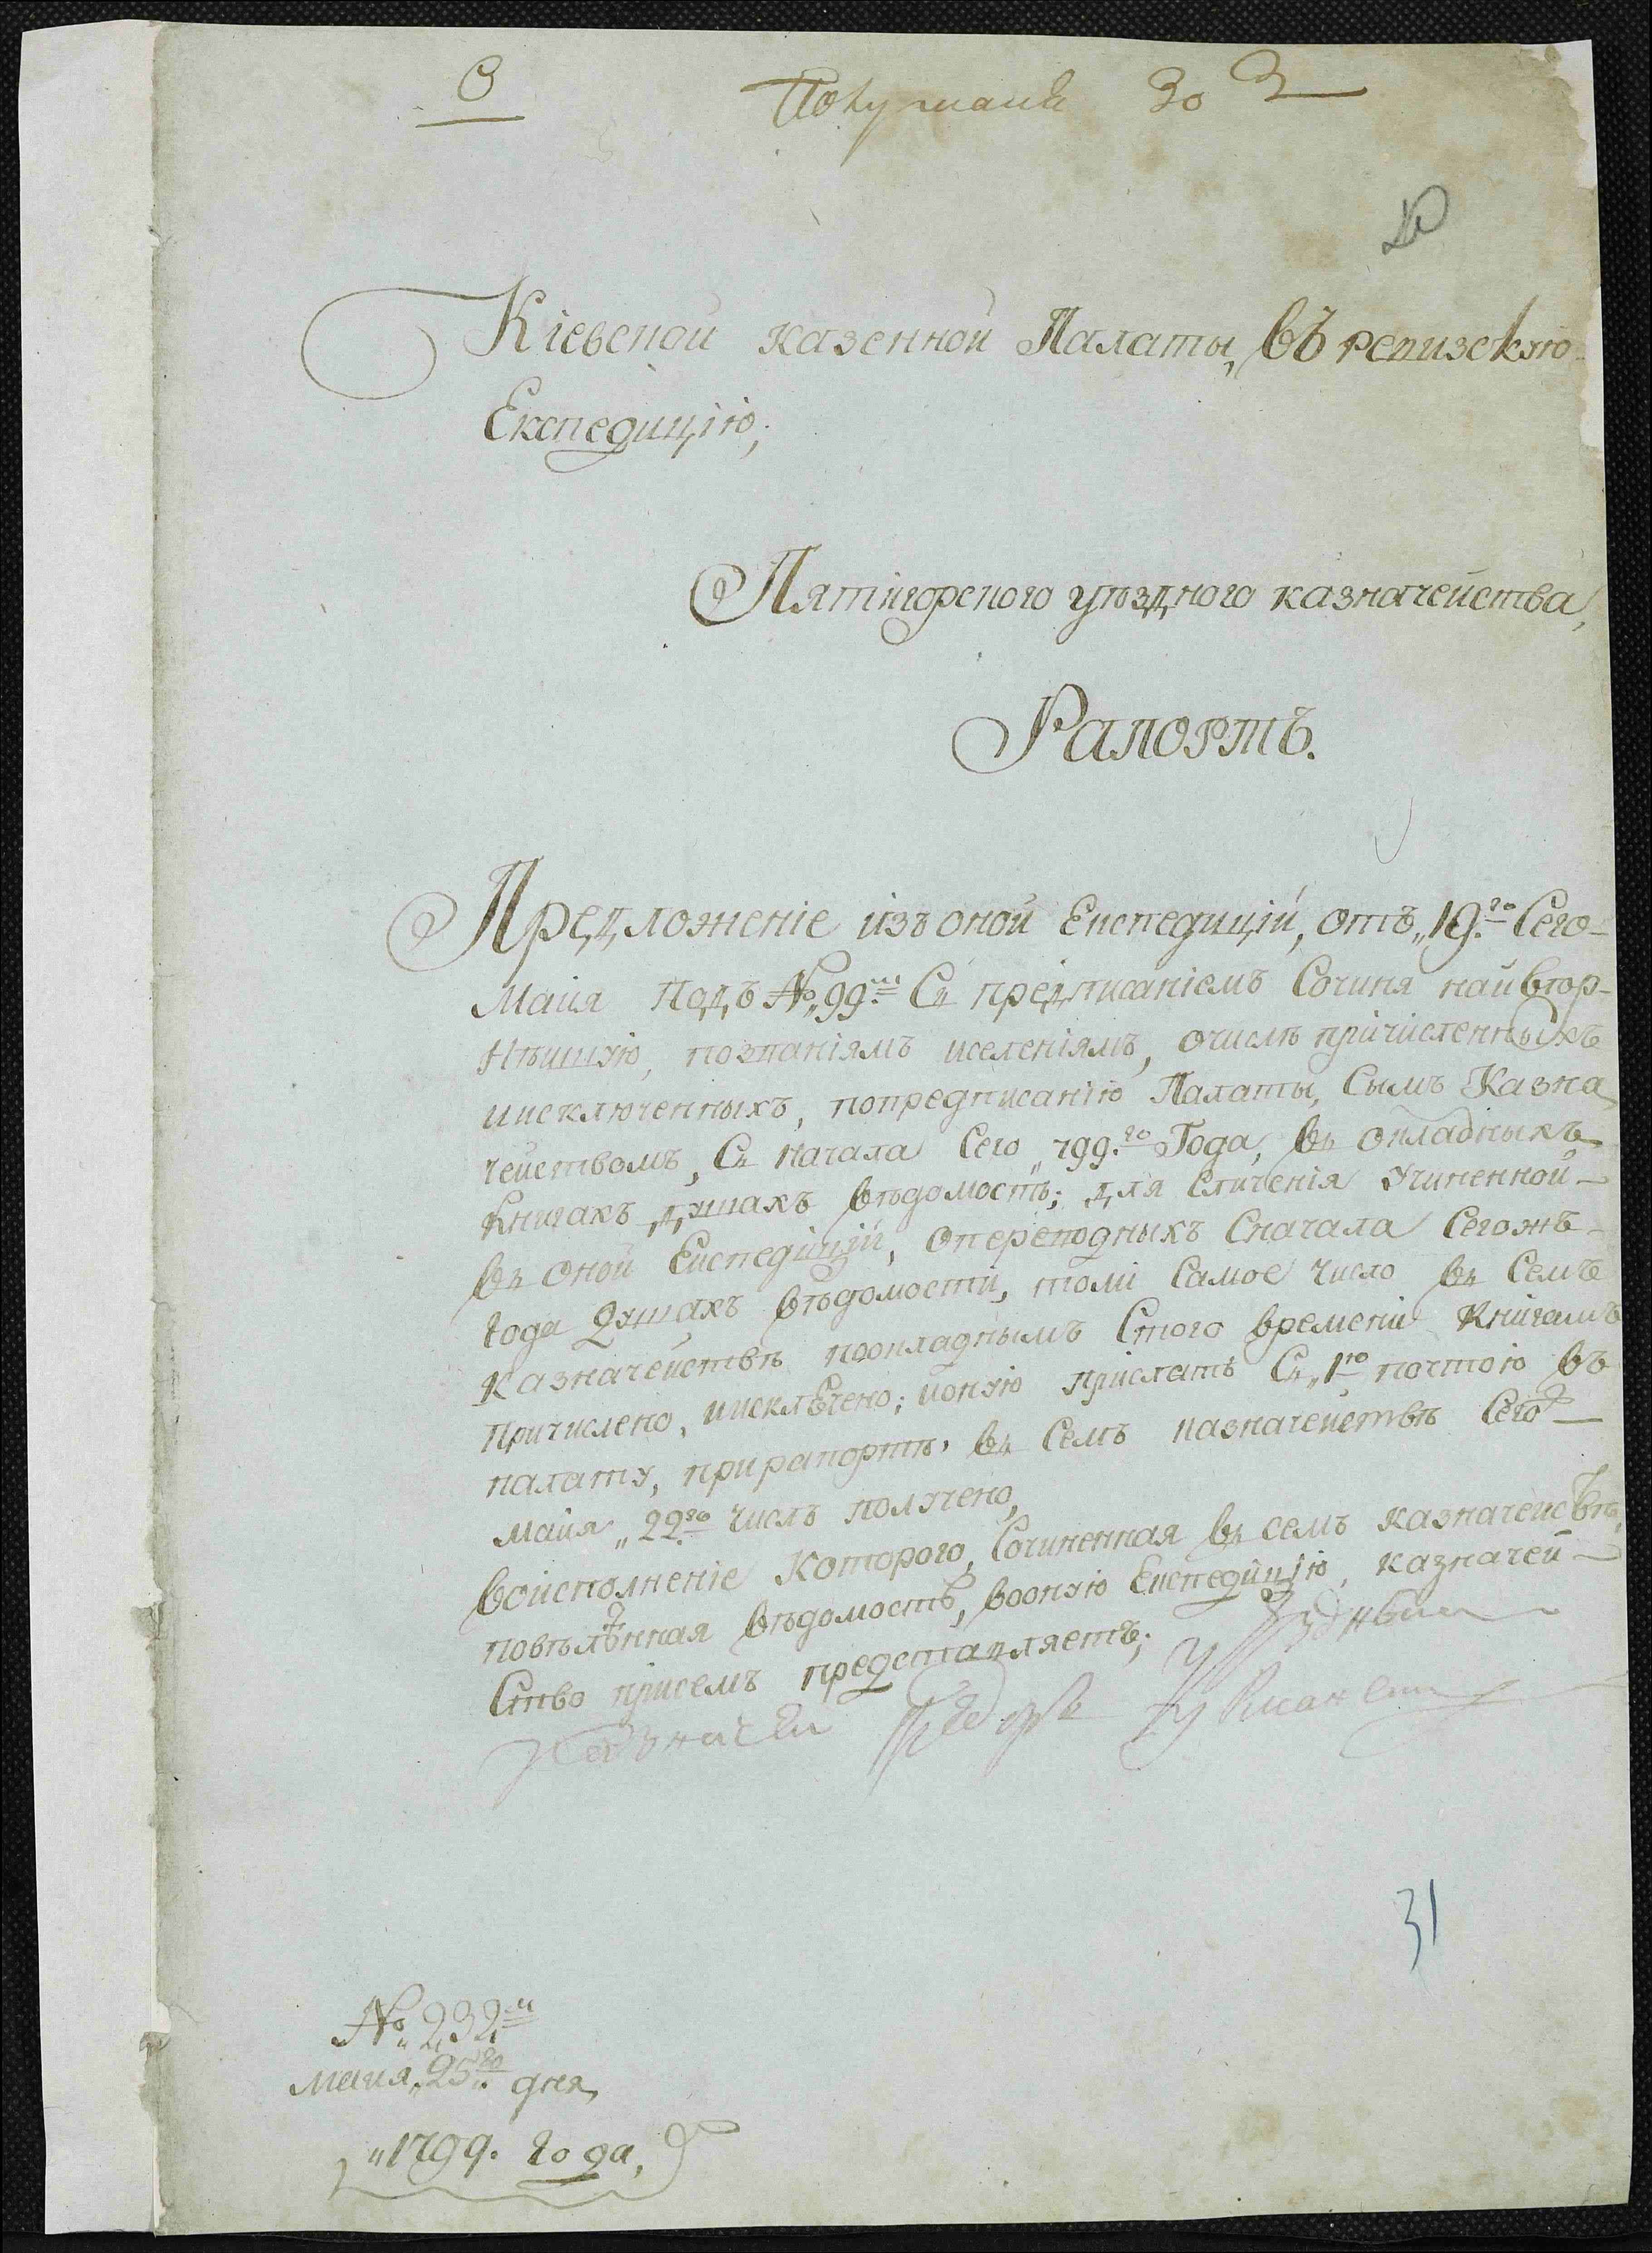 Получено 30
Кіевской казенной Палаты, въ ревизскую
Експедицію;
Пятигорского уѣздного казначейства,
Рапортъ.
Предложеніе изъ оной Експедиціи, отъ „19.го Сего
Маия Подъ №„99.мъ Съ предписаніемъ Сочиня наивѣр-
нѣйшую, позваніямъ иселеніямъ, очислѣ причисленныхъ
иисключенныхъ, попредписанію Палаты, Сымъ Казна
чействомъ, Съ начала Сего „799.го Года, въ окладныхъ
Книгахъ душахъ вѣдомость; для Сличенія Учиненной
въ оной Експедиціи, опереходныхъ Сначала Сегожъ
года душахъ вѣдомости, толи Самое число въ Семъ
Казначействѣ поокладнымъ Стого времени Книгамъ
причислено, иисключено; ионую прислать Съ „1ю почтою въ
палату, прирапортѣ, въ Семъ казначействѣ Сего
Маия „22го числъ получено,
воисполненіе Которого, Сочиненная въ семъ казначействѣ,
повѣлѣнная вѣдомость, вооную Експедицію, казначей
Ство присемъ представляетъ;
Казначей Федоръ
31
№„232.мъ
Маия „25го дня
„1799. года,